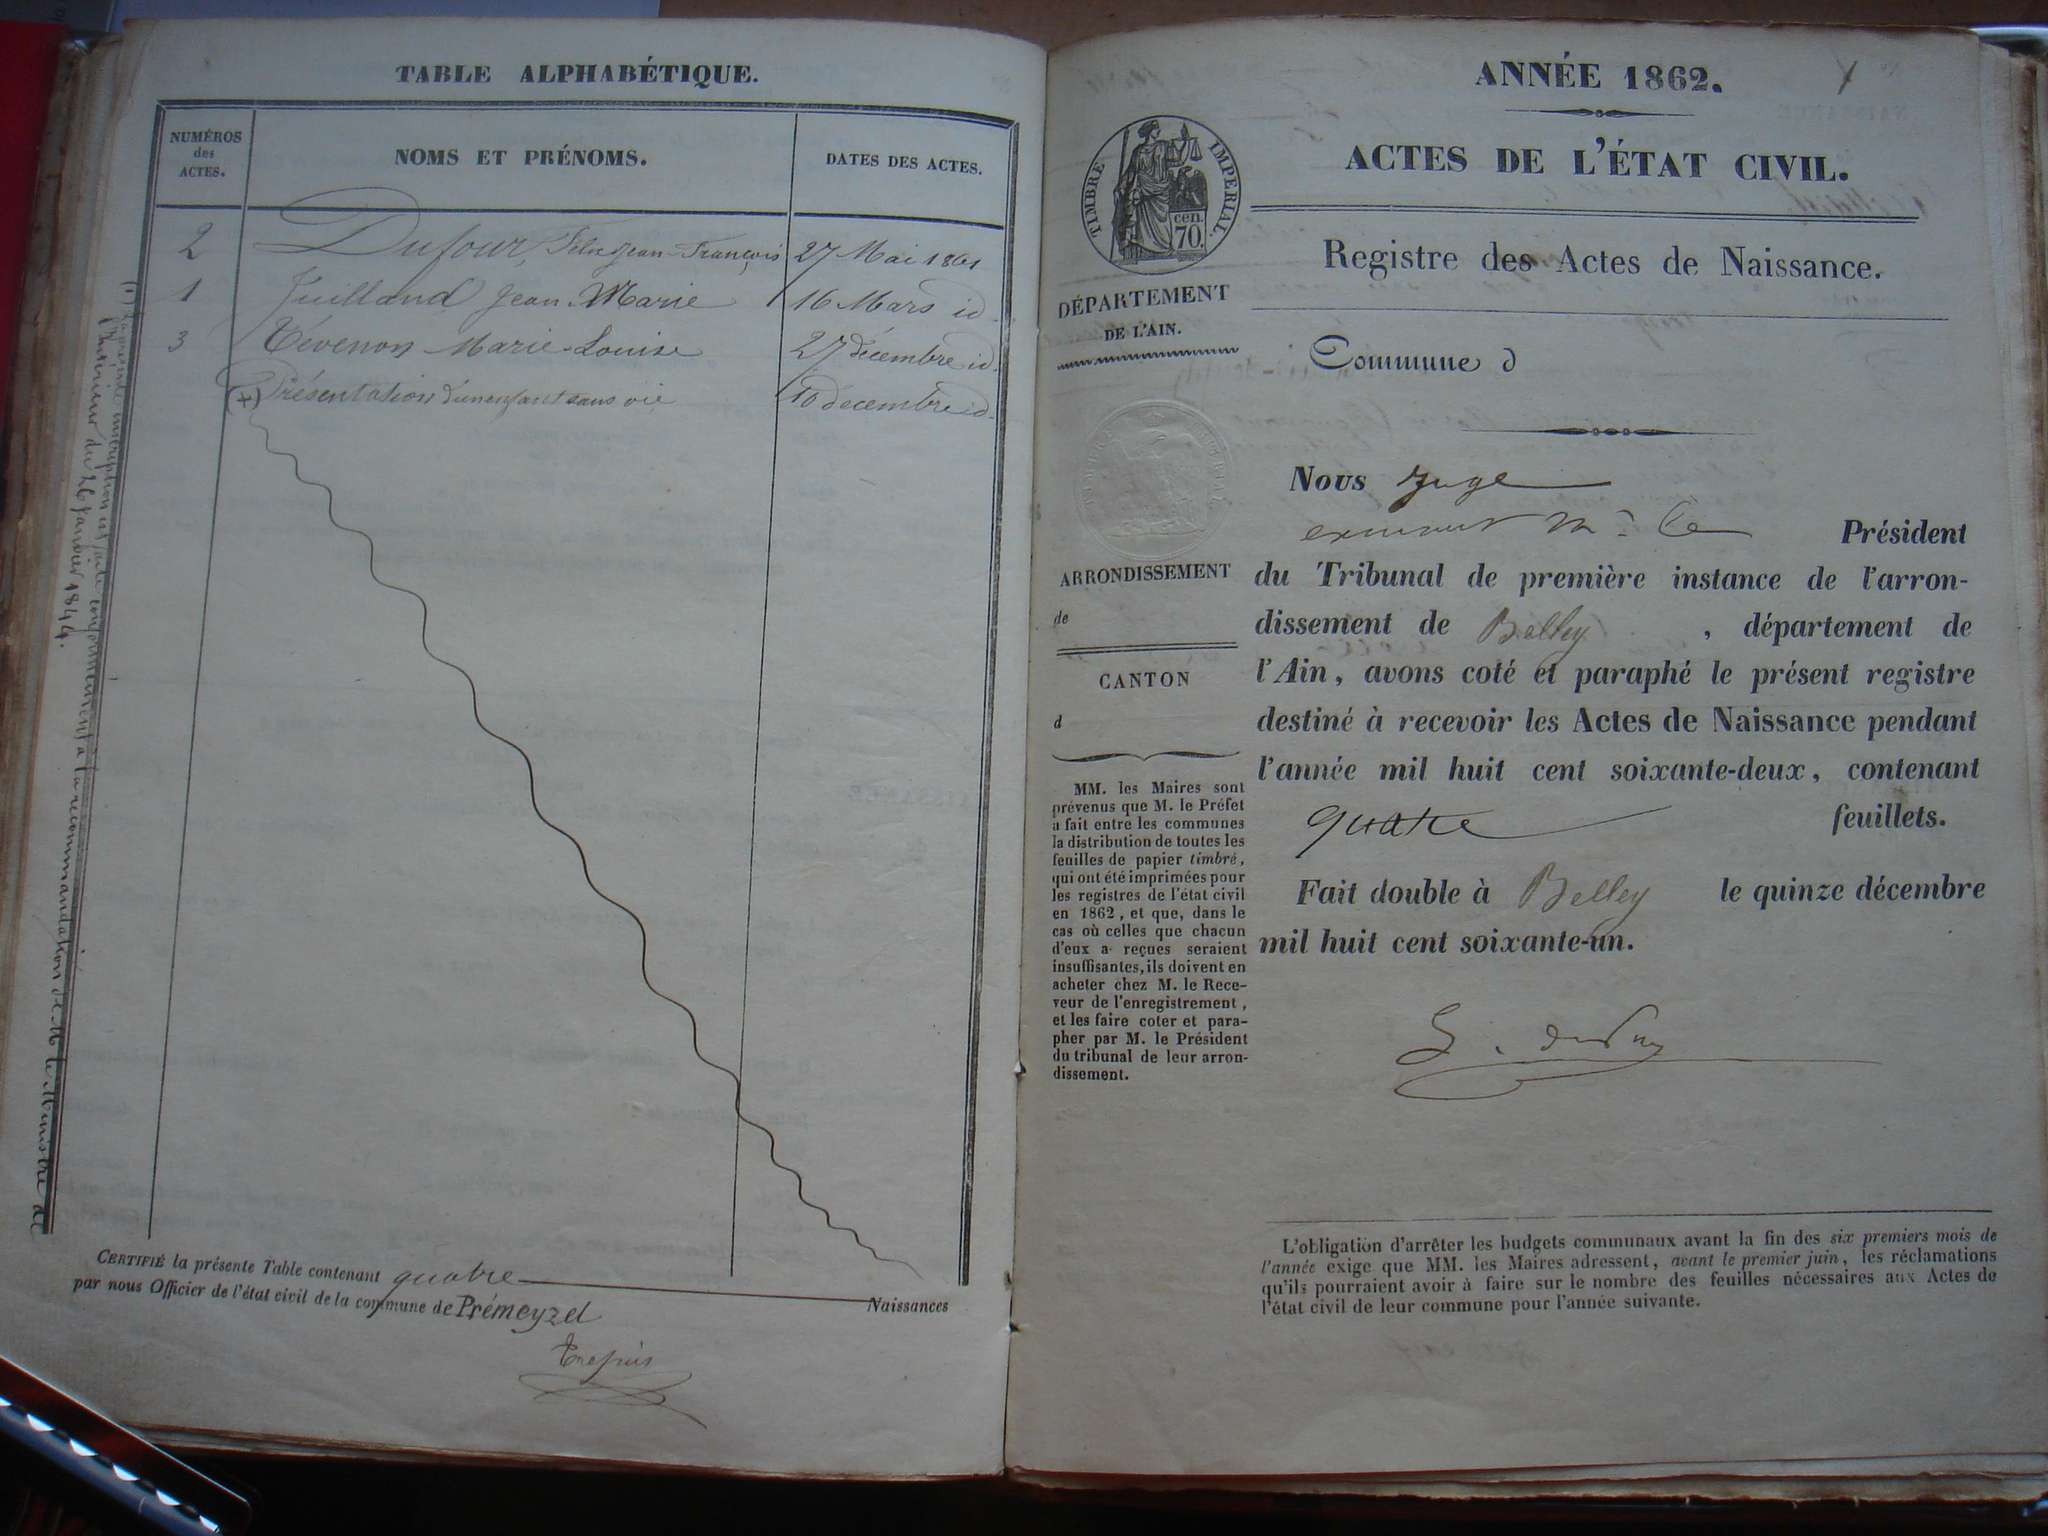 TABLE ALPHABÉTIQUE.
NUMÉROS
des
ACTES.
NOMS ET PRÉNOMS.
DATES DES ACTES.
2 Dufour, Jean-François 27 Mai 1861
1 Juilland Jean Marie 16 Mars id
3 Tévenon Marie-Louise 27 décembre id.
(+) Présentation d'un enfant sans vie 10 décembre id.
(+) La présente inscription est faite conformément à la recommandation de M. le Ministre de
l'Intérieur du 26 janvier 1844.
CERTIFIÉ la présente Table contenant quatre
Naissances
par nous Officier de l'état civil de la commune de Prémeyzel
ANNÉE 1862.
1
ACTES DE L'ÉTAT CIVIL.
TIMBRE IMPERIAL.
cen.
70.
Registre des Actes de Naissance.
DÉPARTEMENT
DE L'AIN.
Commune d
Nous Juge
Mr Le Président
ARRONDISSEMENT
de
CANTON
d
du Tribunal de première instance de l'arron-
dissement de Belley, département de
l'Ain, avons coté et paraphé le présent registre
destiné à recevoir les Actes de Naissance pendant
l'année mil huit cent soixante-deux, contenant
quatre feuillets.
Fait double à Belley le quinze décembre
mil huit cent soixante-un.
MM. les Maires sont
prévenus que M. le Préfet
a fait entre les communes
la distribution de toutes les
feuilles de papier timbré,
qui ont été imprimées pour
les registres de l'état civil
en 1862, et que, dans le
cas où celles que chacun
d'eux a reçues seraient
insuffisantes, ils doivent en
acheter chez M. le Rece-
veur de l'enregistrement,
et les faire coter et para-
pher par M. le Président
du tribunal de leur arron-
dissement.
L'obligation d'arrêter les budgets communaux avant la fin des six premiers mois de
l'année exige que MM. les Maires adressent, avant le premier juin, les réclamations
qu'ils pourraient avoir à faire sur le nombre des feuilles nécessaires aux Actes de
l'état civil de leur commune pour l'année suivante.